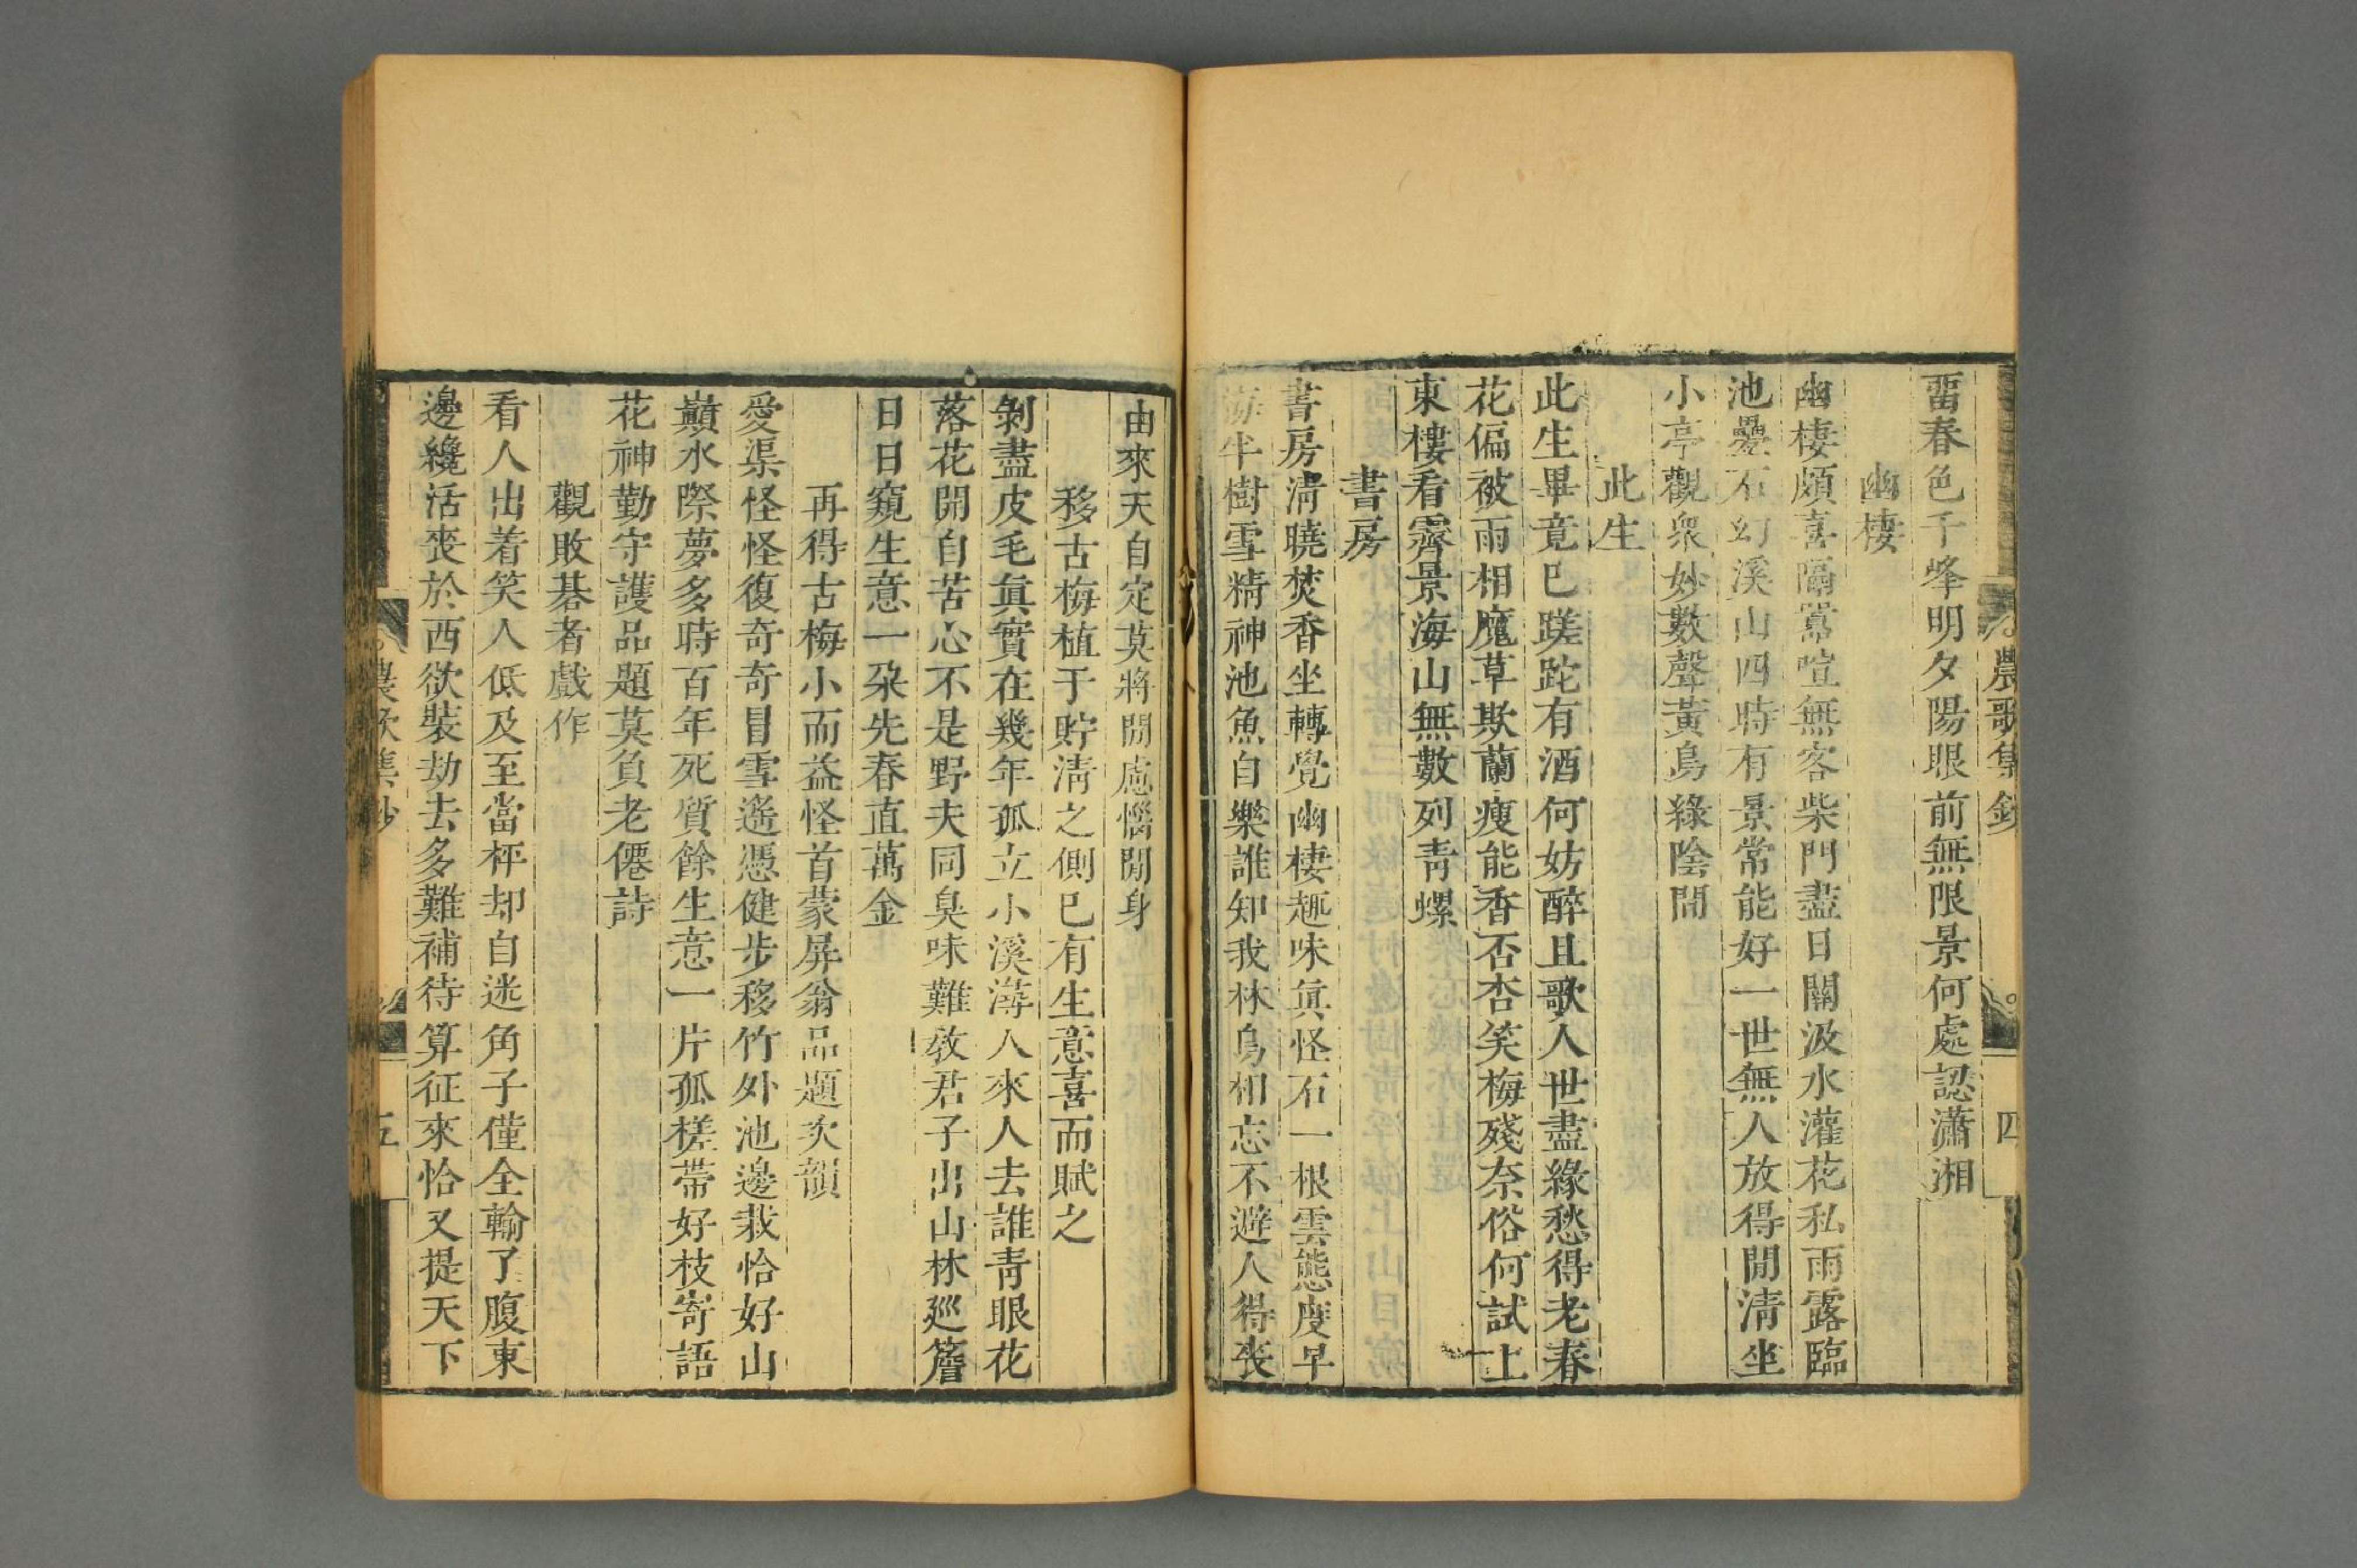 農歌集鈔
四
畱春色千峰明夕陽眼前無限景何處認瀟湘
幽棲
幽棲頗喜隔嚣喧無客柴門盡日關汲水灌花私雨露臨
池疊石幻溪山四時有景常能好一世無人放得閒淸坐
小亭觀衆妙數聲黃鳥綠陰間
此生
此生畢竟已蹉跎有酒何妨醉且歌人世盡緣愁得老春
花偏被雨相魔草欺蘭瘦能香否杏笑梅殘奈俗何試上
東樓看霽景海山無數列靑螺
書房
書房淸曉焚香坐轉覺幽棲趣味眞怪石一根雲態度早
梅半樹雪精神池魚自樂誰知我林鳥相忘不避人得喪
由來天自定莫將閒慮惱閒身
移古梅植于貯淸之側已有生意喜而賦之
剝盡皮毛眞實在幾年孤立小溪潯人來人去誰靑眼花
落花開自苦心不是野夫同臭味難敎君子出山林廵簷
日日窺生意一朶先春直萬金
再得古梅小而益怪首蒙屏翁品題次韻
愛渠怪怪復奇奇冒雪遙憑健步移竹外池邊栽恰好山
巔水際夢多時百年死質餘生意一片孤槎帶好枝寄語
花神勤守護品題莫負老僊詩
觀敗棊者戲作
看人出着笑人低及至當枰却自迷角子僅全輸了腹東
邊纔活喪於西欲裝劫去多難補待算征來恰又提天下
農歌集鈔
五